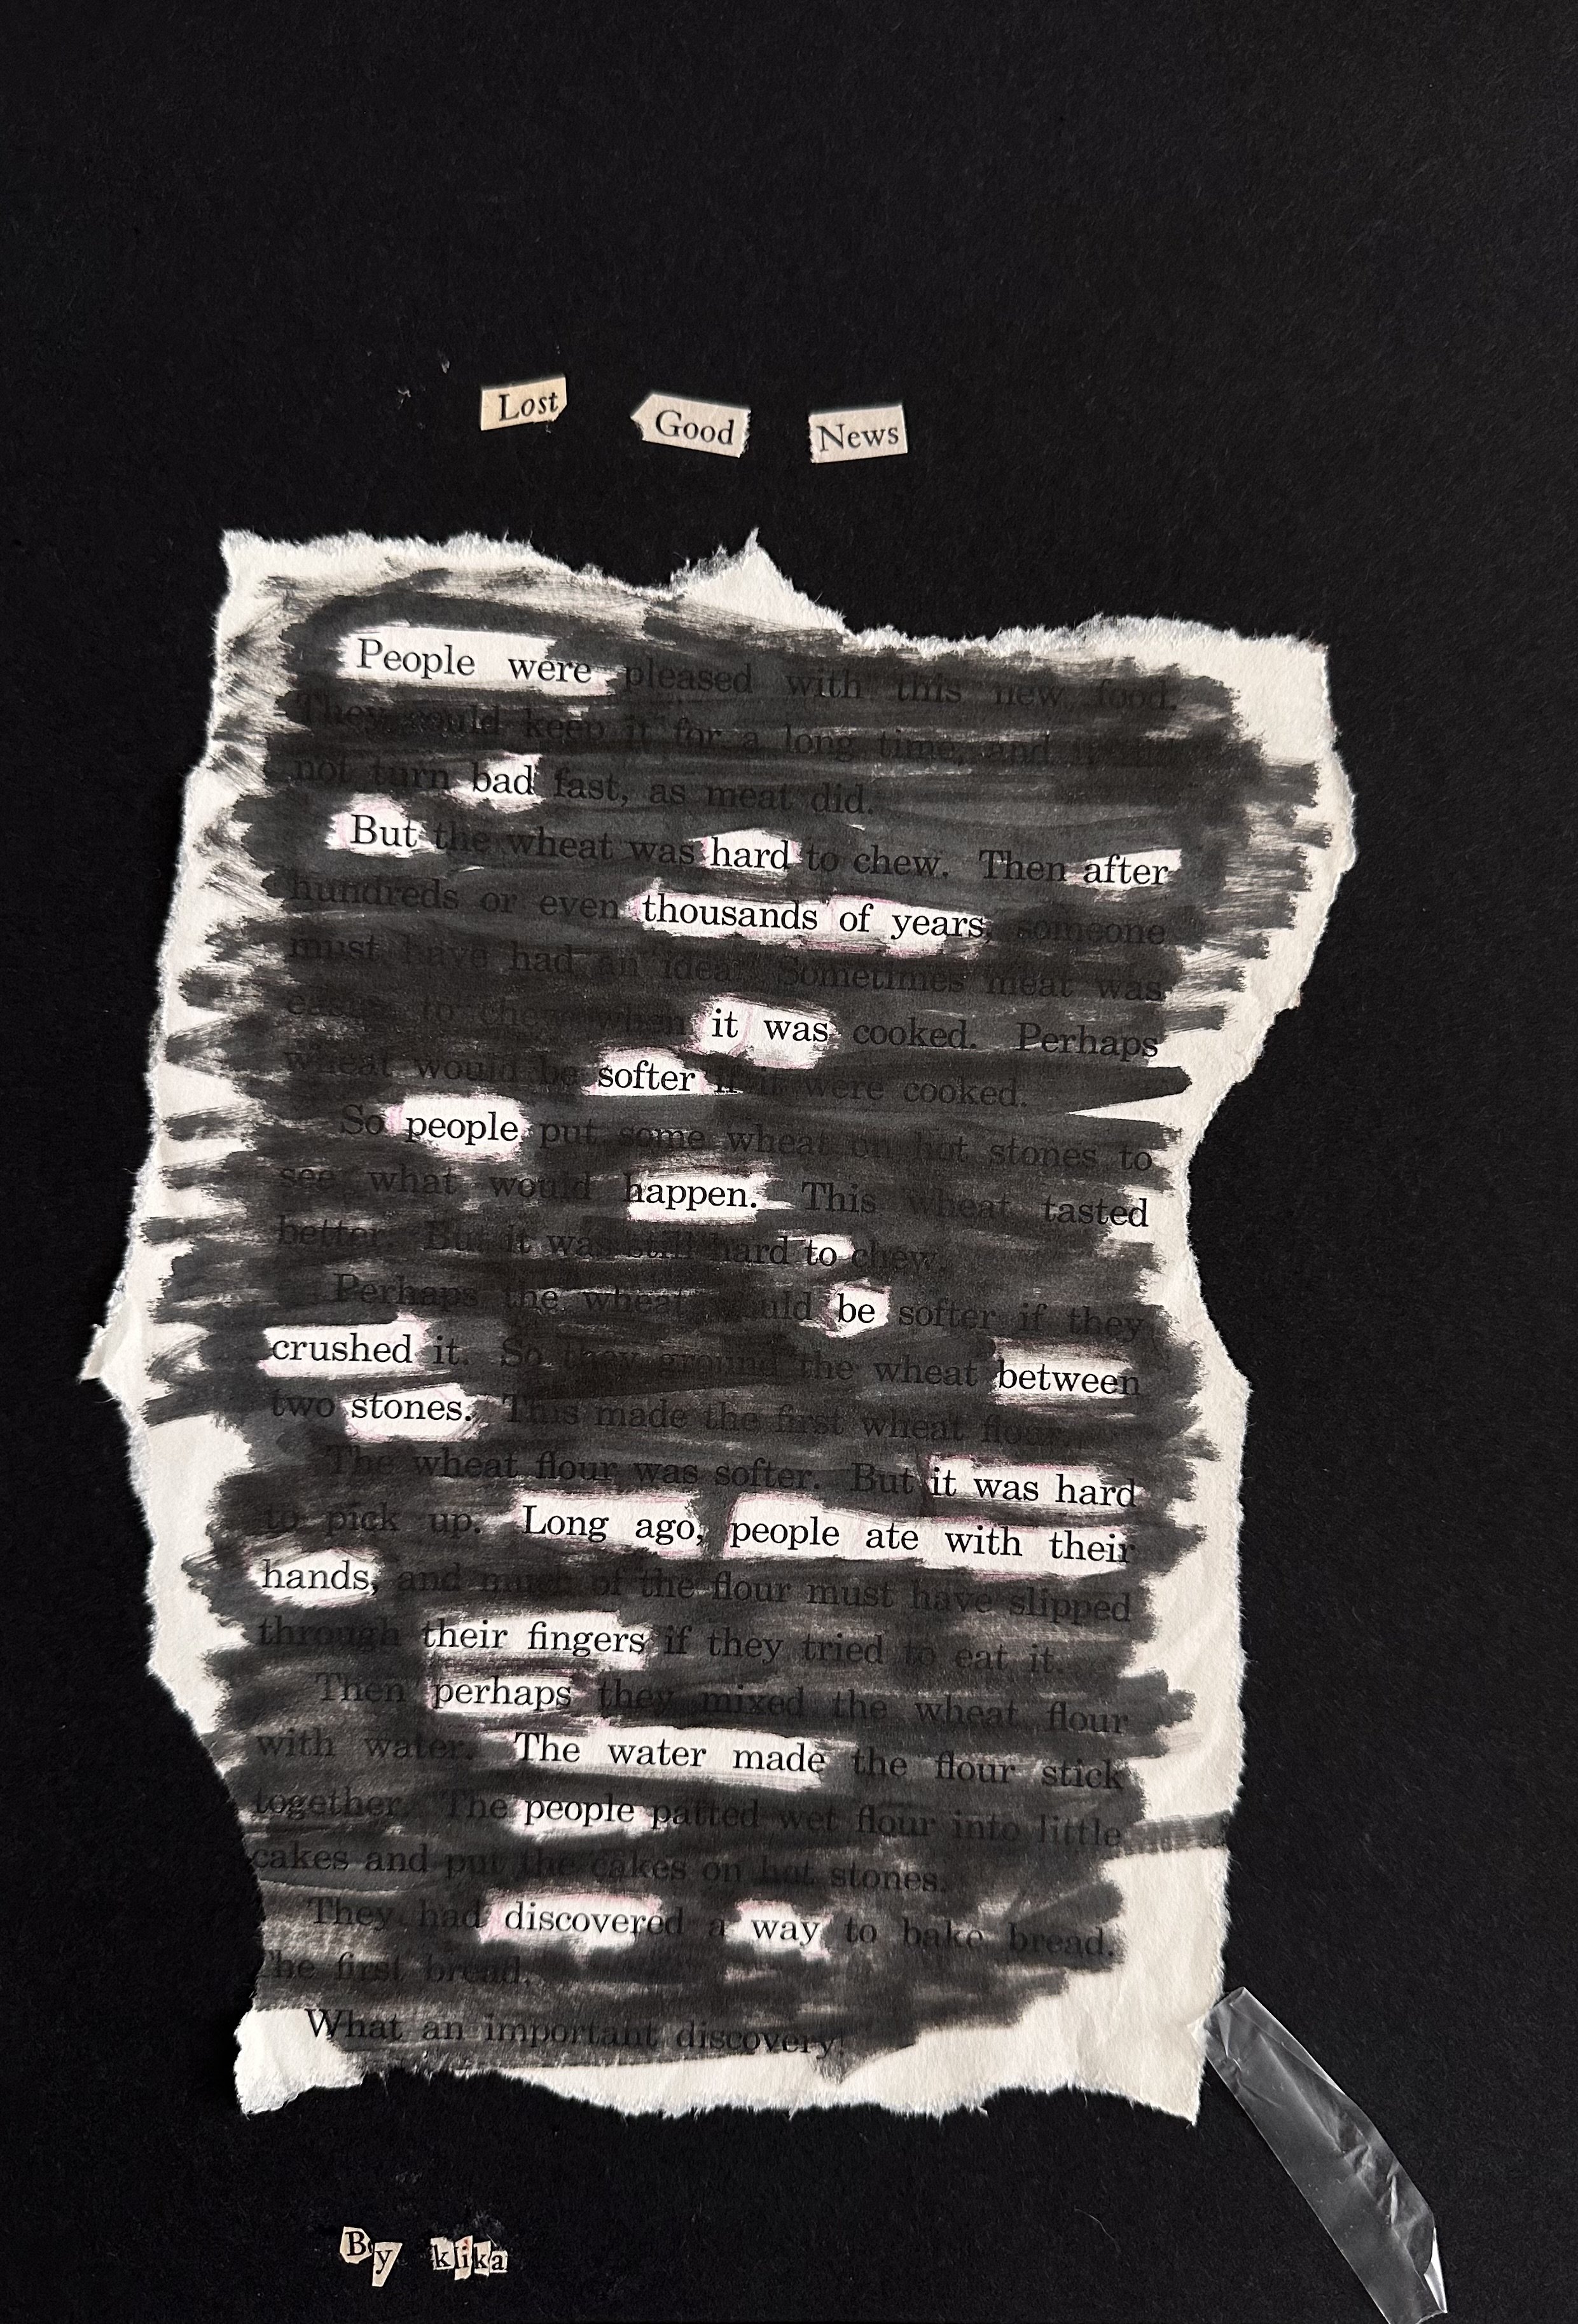 Lost Good News
People were pleased with this new food.
They could keep it for a long time, and it
not turn bad fast, as meat did.
But the wheat was hard to chew. Then after
hundreds or even thousands of years, someone
must have had an idea. Sometimes meat was
easier to chew when it was cooked. Perhaps
wheat would be softer if it were cooked.
So people put some wheat on hot stones to
see what would happen. This wheat tasted
better. But it was still hard to chew.
Perhaps the wheat would be softer if they
crushed it. So they ground the wheat between
two stones. This made the first wheat flour.
The wheat flour was softer. But it was hard
to pick up. Long ago, people ate with their
hands, and much of the flour must have slipped
through their fingers if they tried to eat it.
Then perhaps they mixed the wheat flour
with water. The water made the flour stick
together. The people patted wet flour into little
cakes and put the cakes on hot stones.
They had discovered a way to bake bread.
The first bread.
What an important discovery!
By klika